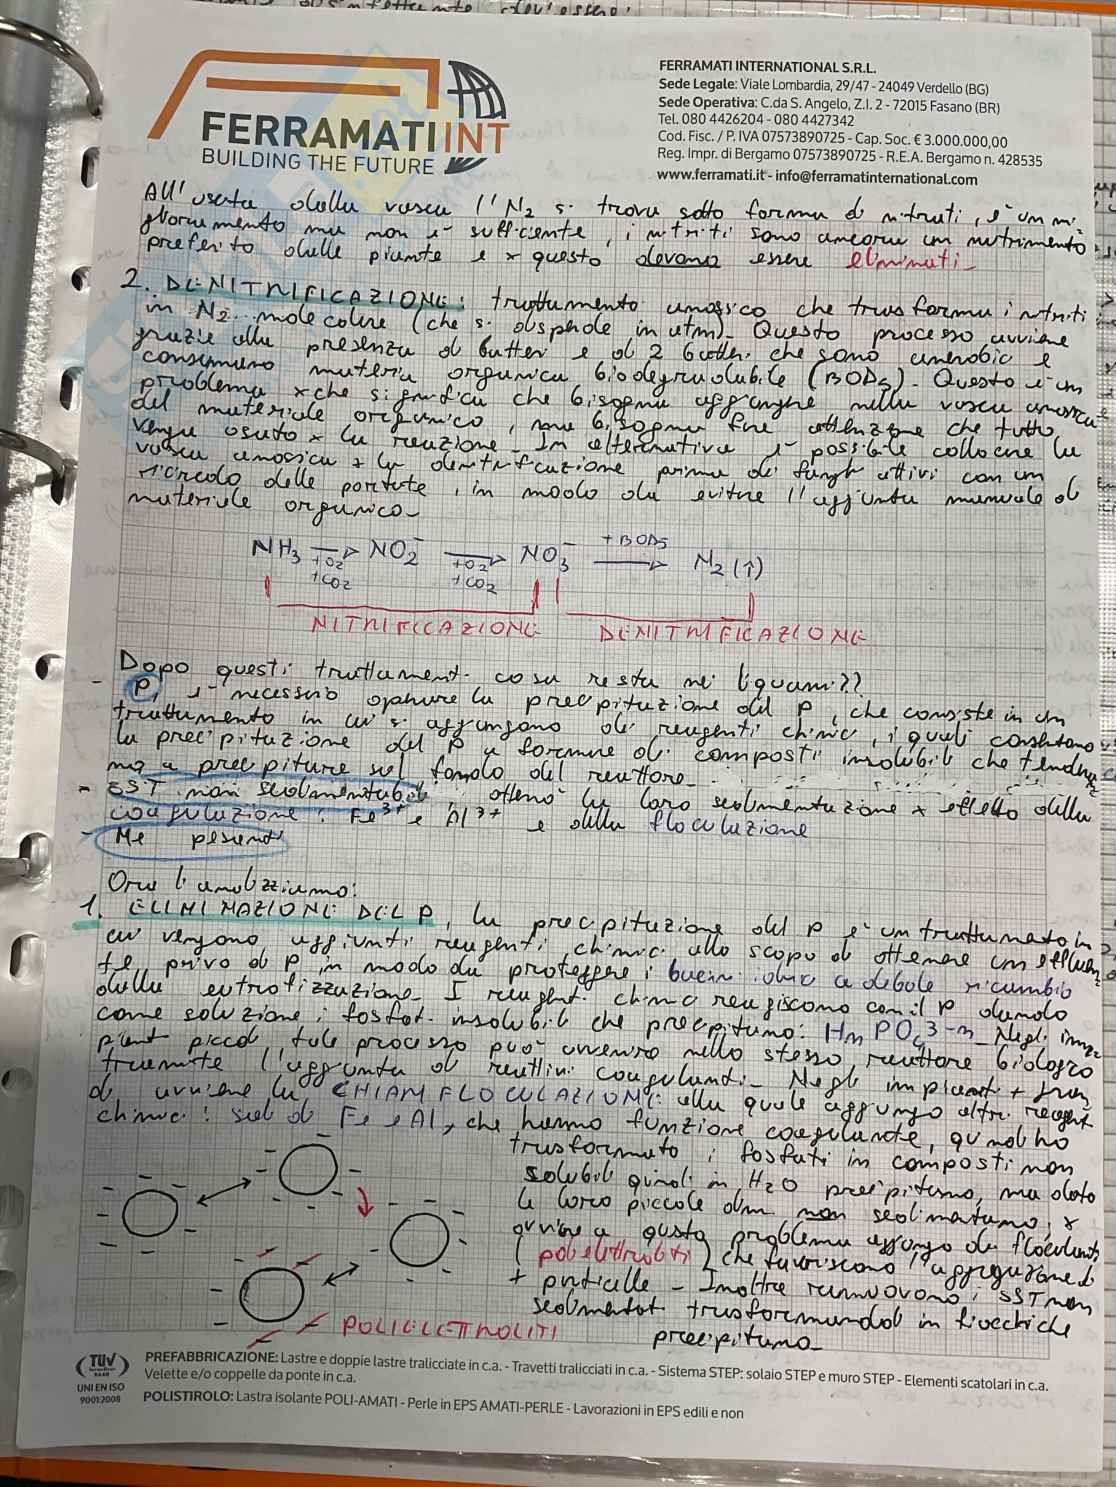 FERRAMATI INTERNATIONAL S.R.L.
Sede Legale: Viale Lombardia, 29/47 - 24049 Verdello (BG)
Sede Operativa: C.da S. Angelo, Z.I. 2 - 72015 Fasano (BR)
Tel. 080 4426204 - 080 4427342
Cod. Fisc. / P. IVA 07573890725 - Cap. Soc. € 3.000.000,00
Reg. Impr. di Bergamo 07573890725 - R.E.A. Bergamo n. 428535
www.ferramati.it - info@ferramatinternational.com
FERRAMATI INT
BUILDING THE FUTURE
All'uscita della vasca l'N2 si trova sotto forma di nitrati, è un mi-
glioramento ma non è sufficiente, i nitriti sono ancora un nutrimento
preferito dalle piante e x questo devono essere eliminati_
2. DENITRIFICAZIONE: trattamento anossico che trasforma i nitrati
in N2 molecolare (che si disperde in atm)_ Questo processo avviene
grazie alla presenza di batteri e di 2 batteri che sono anerobici e
consumano materia organica biodegradabile (BOD5)_ Questo è un
problema xche significa che bisogna aggiungere nella vasca anossica
del materiale organico, ma bisogna fare attenzione che tutto
venga usato x la reazione_ In alternativa è possibile collocare la
vasca anossica x la denitrificazione prima dei fanghi attivi con un
ricircolo delle portate, in modo da evitare l'aggiunta manuale di
materiale organico_
NH3 → NO2⁻ → NO3⁻ → N2 (↑)
+O2 +CO2 +O2 +CO2 +BOD5
NITRIFICAZIONE DENITRIFICAZIONE
Dopo questi trattamenti cosa resta nei liquami??
- P, è necessario la precipitazione del P, che consiste in un
trattamento in cui si aggiungono dei reagenti chimici, i quali
la precipitazione del P a formare di composti insolubili che tendono
a precipitare sul fondo del reattore_
- SST non sedimentabili, la loro sedimentazione x effetto della
coagulazione: Fe3+ e Al3+ e della flocculazione
- Me pesanti
Ora li analizziamo:
1. ELIMINAZIONE DEL P, la precipitazione del P è un trattamento in
cui vengono aggiunti reagenti chimici allo scopo di ottenere un effluen-
te privo di P in modo da proteggere i bacini idrici a debole ricambio
dalla eutrofizzazione_ I reagenti chimici reagiscono con il P dando
come soluzione i fosfati insolubili che precipitano: HnPO4 3-n_ Negli im-
pianti piccoli tale processo può avvenire nello stesso reattore biologico
tramite l'aggiunta di reattivi coagulanti_ Negli impianti + gran
di avviene la CHIARIFLOCULAZIONE alla quale aggiungo altri reagenti
chimici: sali di Fe e Al, che hanno funzione coagulante, quindi ho
trasformato i fosfati in composti non
solubili quindi in H2O precipitano, ma data
la loro piccole dim. non sedimentano, x
ovviare a questo problema aggiungo dei flocculanti
(polielettroliti) che favoriscono l'aggregazione di
+ particelle_ Inoltre rimuovono i SST non
sedimentati trasformandoli in fiocchi che
precipitano_
POLIELETTROLITI
TÜV
UNI EN ISO
9001:2008
PREFABBRICAZIONE: Lastre e doppie lastre tralicciate in c.a. - Travetti tralicciati in c.a. - Sistema STEP: solaio STEP e muro STEP - Elementi scatolari in c.a.
Velette e/o coppelle da ponte in c.a.
POLISTIROLO: Lastra isolante POLI-AMATI - Perle in EPS AMATI-PERLE - Lavorazioni in EPS edili e non